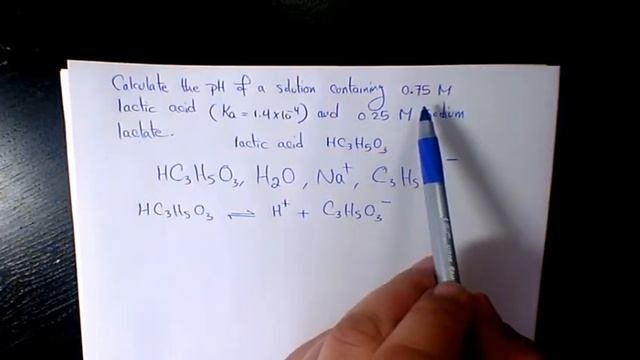 Calculate the pH of a solution containing 0.75 M
lactic acid (Ka = 1.4×10⁻⁴) and 0.25 M
lactate. lactic acid HC₃H₅O₃
HC₃H₅O₃, H₂O, Na⁺, C₃H₅ ⁻
HC₃H₅O₃ ⇌ H⁺ + C₃H₅O₃⁻